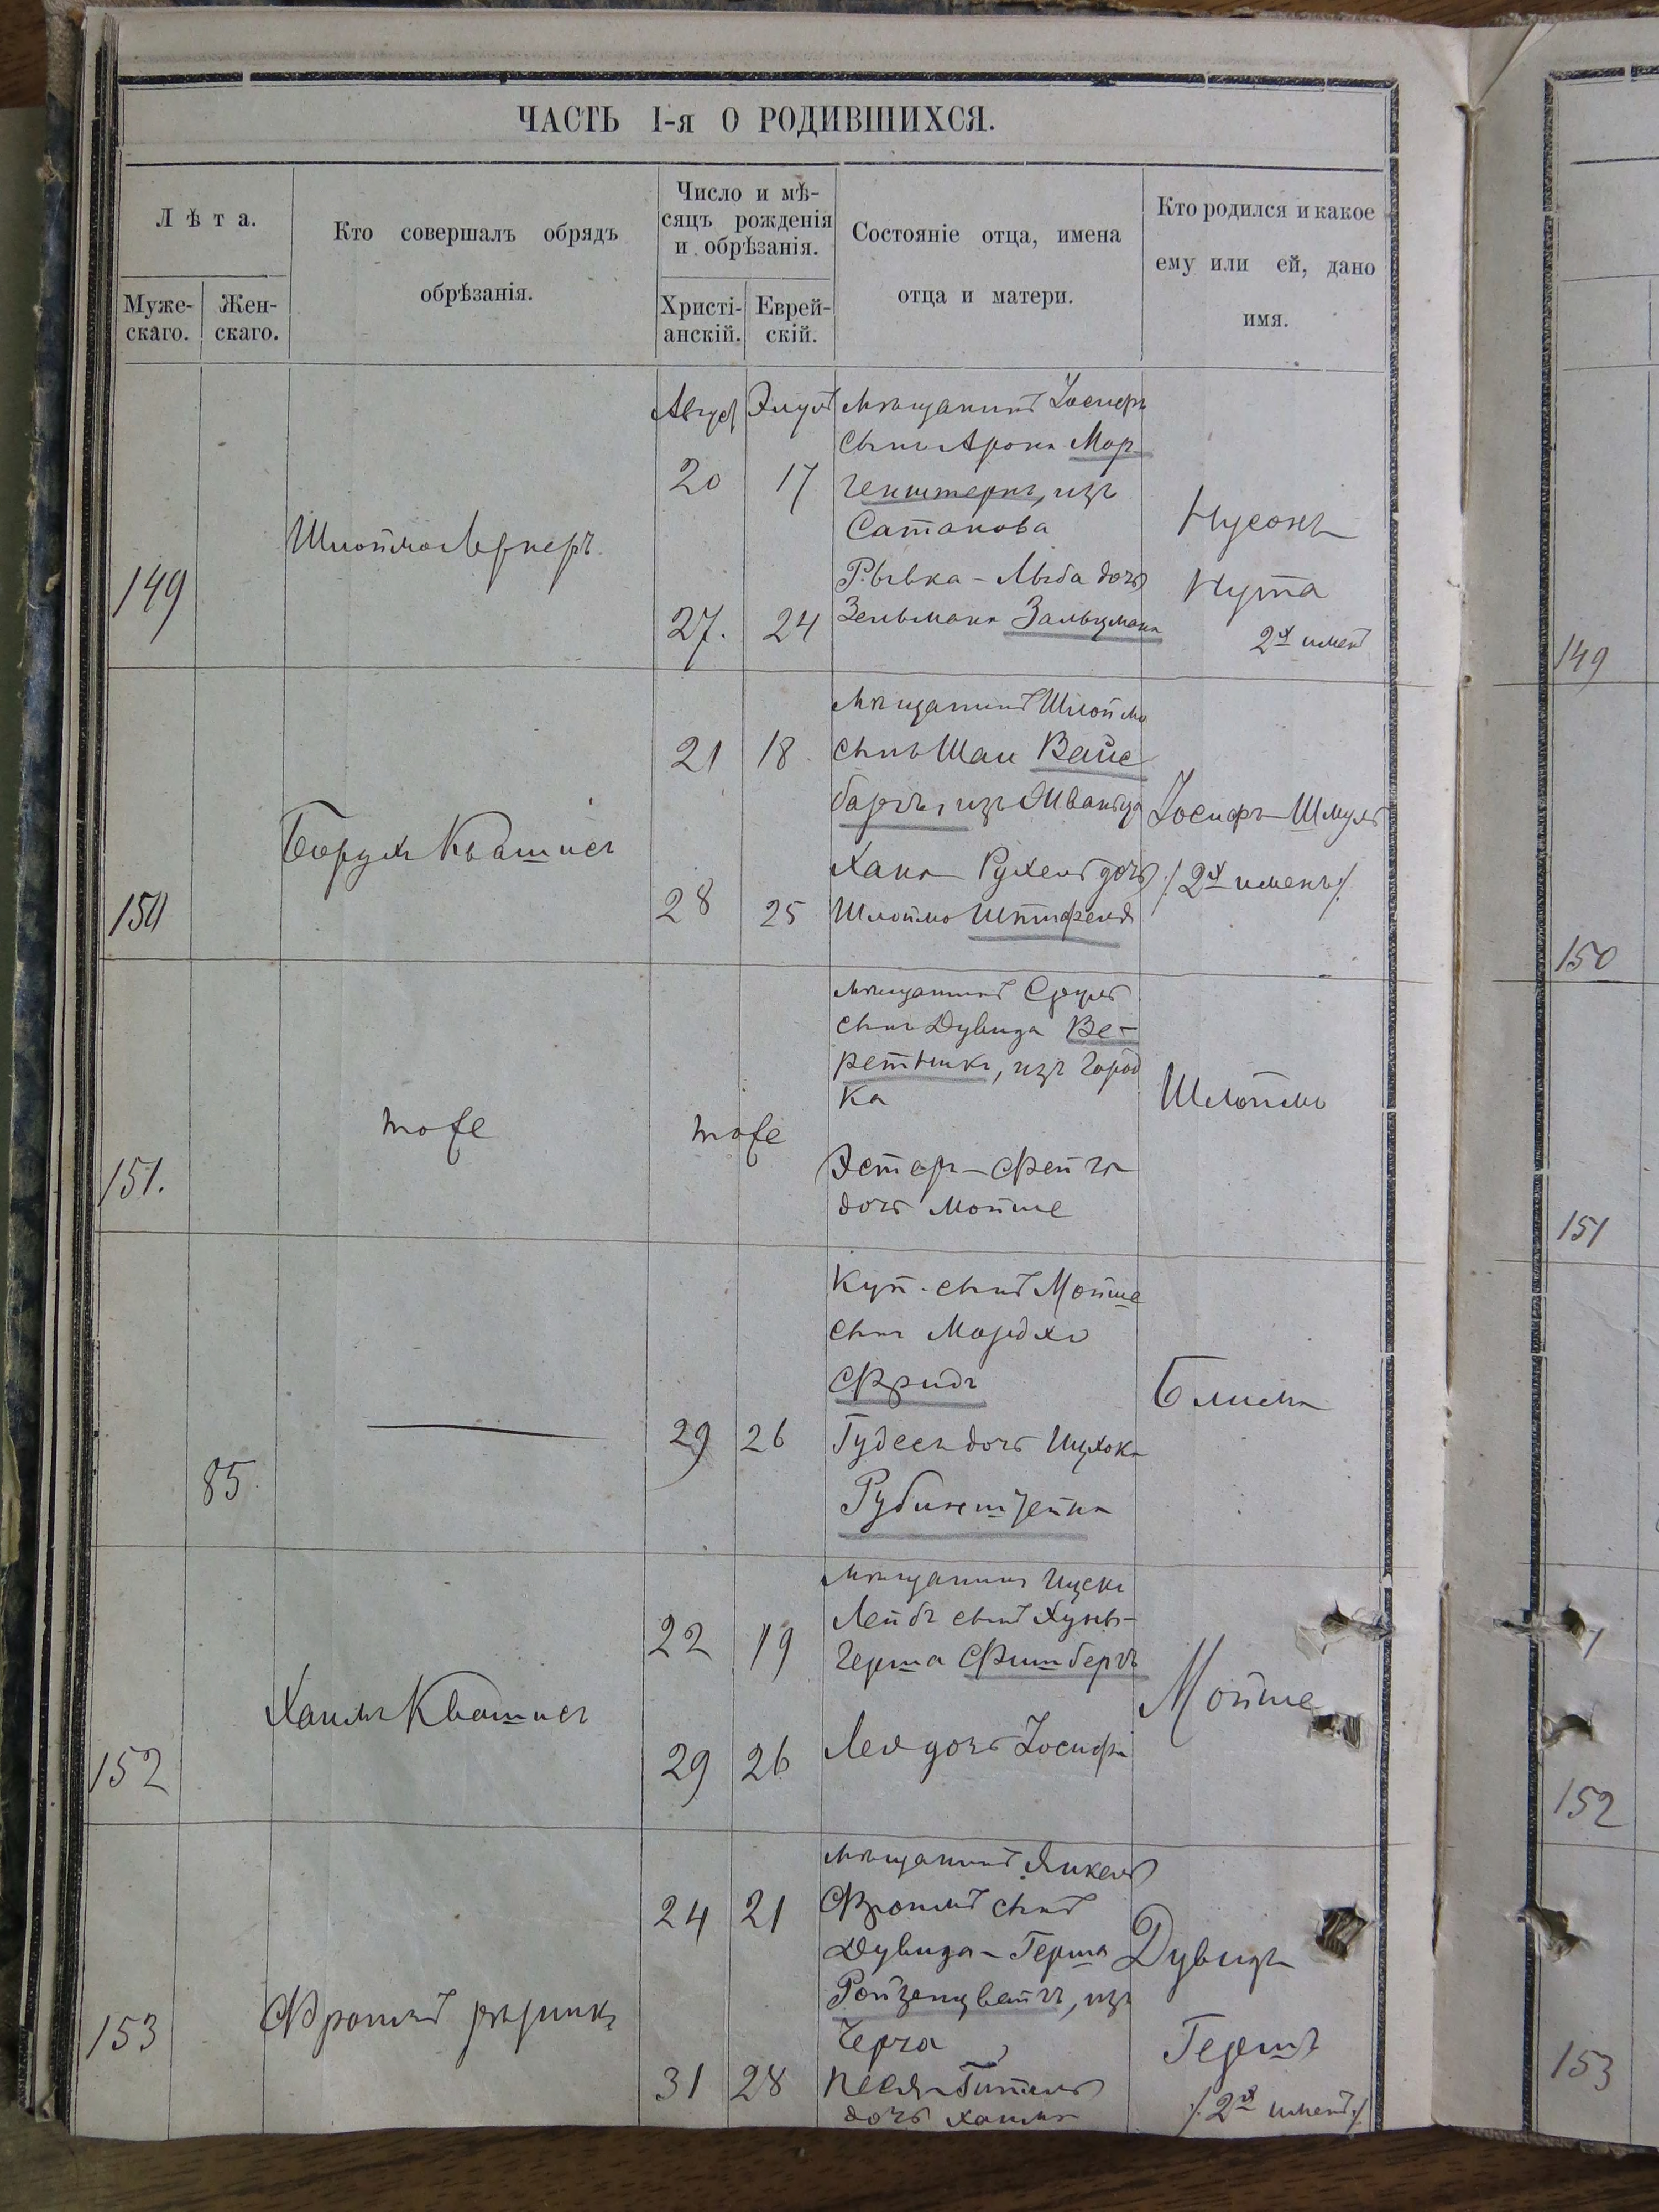 ЧАСТЬ I-я О РОДИВШИХСЯ.
Лѣта.
Муже-
скаго.
Жен-
скаго.
Кто совершалъ обрядъ
обрѣзанія.
Число и мѣ-
сяцъ рожденія
и обрѣзанія.
Христі-
анскій.
Еврей-
скій.
Состояніе отца, имена
отца и матери.
Кто родился и какое
ему или ей, дано
имя.
149
Шлойма Лернеръ
Август Элулъ
20 17
27. 24
Мѣщанинъ Іосифъ
сынъ Арона Мор
генштернъ, изъ
Сатанова
Рывка-Лыба дочь
Зельмана Зальцмана
Нусонъ
Нута
2хъ именъ
149
150
Борухъ Квашисъ
21 18
28 25
Мѣщанинъ Шлойма
сынъ Шаи Вайс
бергъ, изъ Жванца
Хана Рухель дочь
Шлойма
Іосифъ-Шмуль
/:2хъ именъ:/
150
151.
тоже
тоже
Мѣщанинъ Сруль
сынъ Дувида Ве-
ретникъ, изъ Город
ка
Эстеръ-Фейга
дочь Мойше
Шлойма
151
85.
29 26
Куп. сынъ Мойше
сынъ Мордко
Фридъ
Гудесъ дочь Ицхока
Рубинштейна
Блима
152
Хаимъ Квашисъ
22 19
29 26
Мѣщанинъ Ицекъ
Лейбъ сынъ Хунъ-
Герша Фишбергъ
Лея дочь Іосифа
Мойше
152
153
Фроимъ
24 21
31 28
Мѣщанинъ Янкель
Фроимъ сынъ
Дувида-Герша
Ройзенцвейгъ, изъ
Черча
Песя-Гитель
дочь Хаима
Дувидъ
Гершъ
/:2хъ именъ:/
153